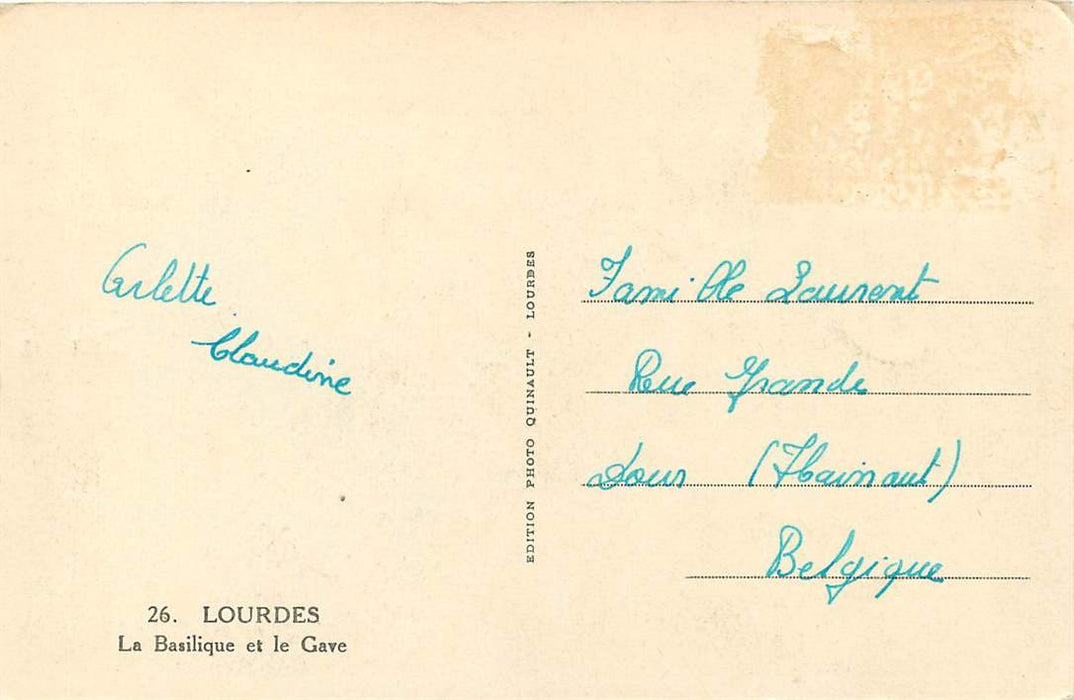 Arlette
Claudine
26. LOURDES
La Basilique et le Gave
EDITION PHOTO QUINAULT - LOURDES
Famille Laurent
Rue Grande
Dour (Hainaut)
Belgique